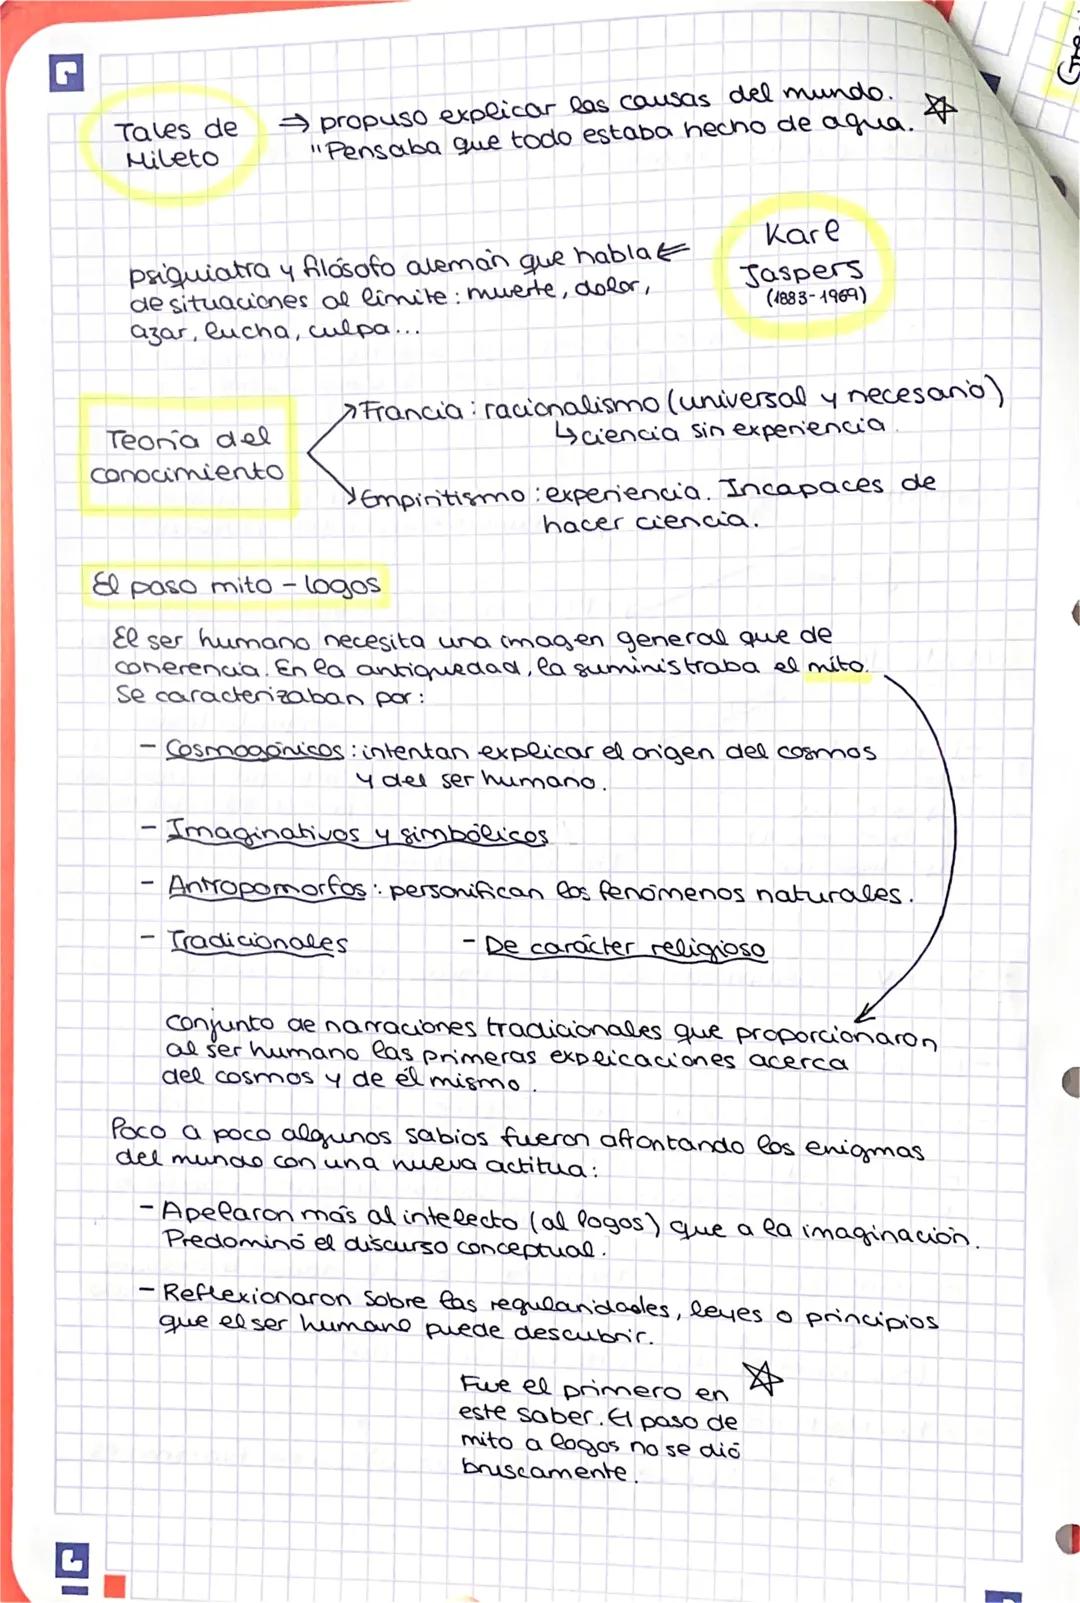 Tales de
Mileto
⇒ propuso explicar las causas del mundo.
"Pensaba que todo estaba hecho de agua. ☆
Karl
Jaspers
(1883-1969)
psiquiatra y filósofo alemán que habla ⇐
de situaciones al límite: muerte, dolor,
azar, lucha, culpa...
Teoría del
conocimiento
Francia: racionalismo (universal y necesario)
↳ ciencia sin experiencia.
Empiritismo: experiencia. Incapaces de
hacer ciencia.
El paso mito - logos
El ser humano necesita una imagen general que de
coherencia. En la antiquedad, la suministraba el mito.
Se caracterizaban por:
- Cosmogónicos: intentan explicar el origen del cosmos
y del ser humano.
- Imaginativos y simbólicos
- Antropomorfos: personifican los fenómenos naturales.
- Tradicionales - De carácter religioso
Conjunto de narraciones tradicionales que proporcionaron
al ser humano las primeras explicaciones acerca
del cosmos y de él mismo.
Poco a poco algunos sabios fueron afrontando los enigmas
del mundo con una nueva actitud:
- Apelaron más al intelecto (al logos) que a la imaginación.
Predominó el discurso conceptual.
- Reflexionaron sobre las regularidades, leyes o principios
que el ser humano puede descubrir.
Fue el primero en ☆
este saber. El paso de
mito a logos no se dió
bruscamente.